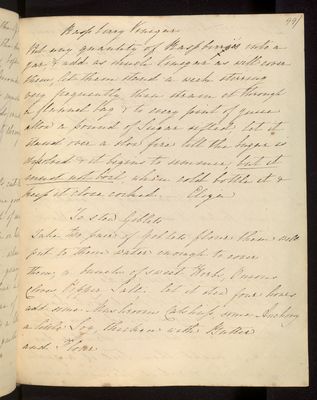 49/
Raspberry Vinegar
Put any quantity of Raspberries into a
jar & add as much Vinegar as will cover
them, let them stand a week stirring
very frequently, then strain it through
a flannel bag & to every point of juice
allow a pound of Sugar sifted, let it
stand over a slow fire till the sugar is
dissolved & it begins to simmer, but it
must not boil when cold bottle it &
keep it close corked. Eliza
To stew Giblets
Take two pair of Goblets flour them well
put to them water enough to cover
them, a bunch of sweet Herbs, Onions
Cloves Pepper Salt. let it stew four hours
add some Mushroom Catchup, some Anchovy
a little Soy, thicken with Butter
and Flour